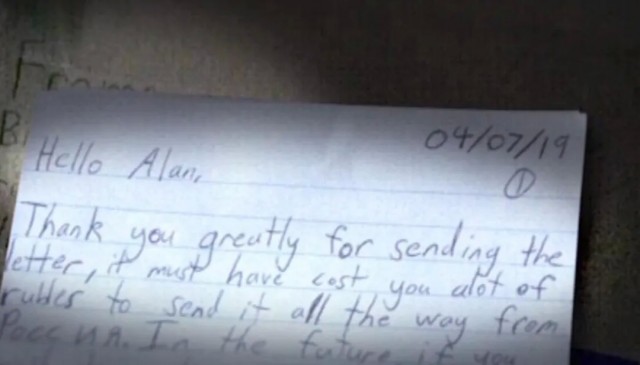 From
B
04/07/19
①
Hello Alan,
Thank you greatly for sending the
letter, it must have cost you alot of
rubles to send it all the way from
Россия. In the future, if you